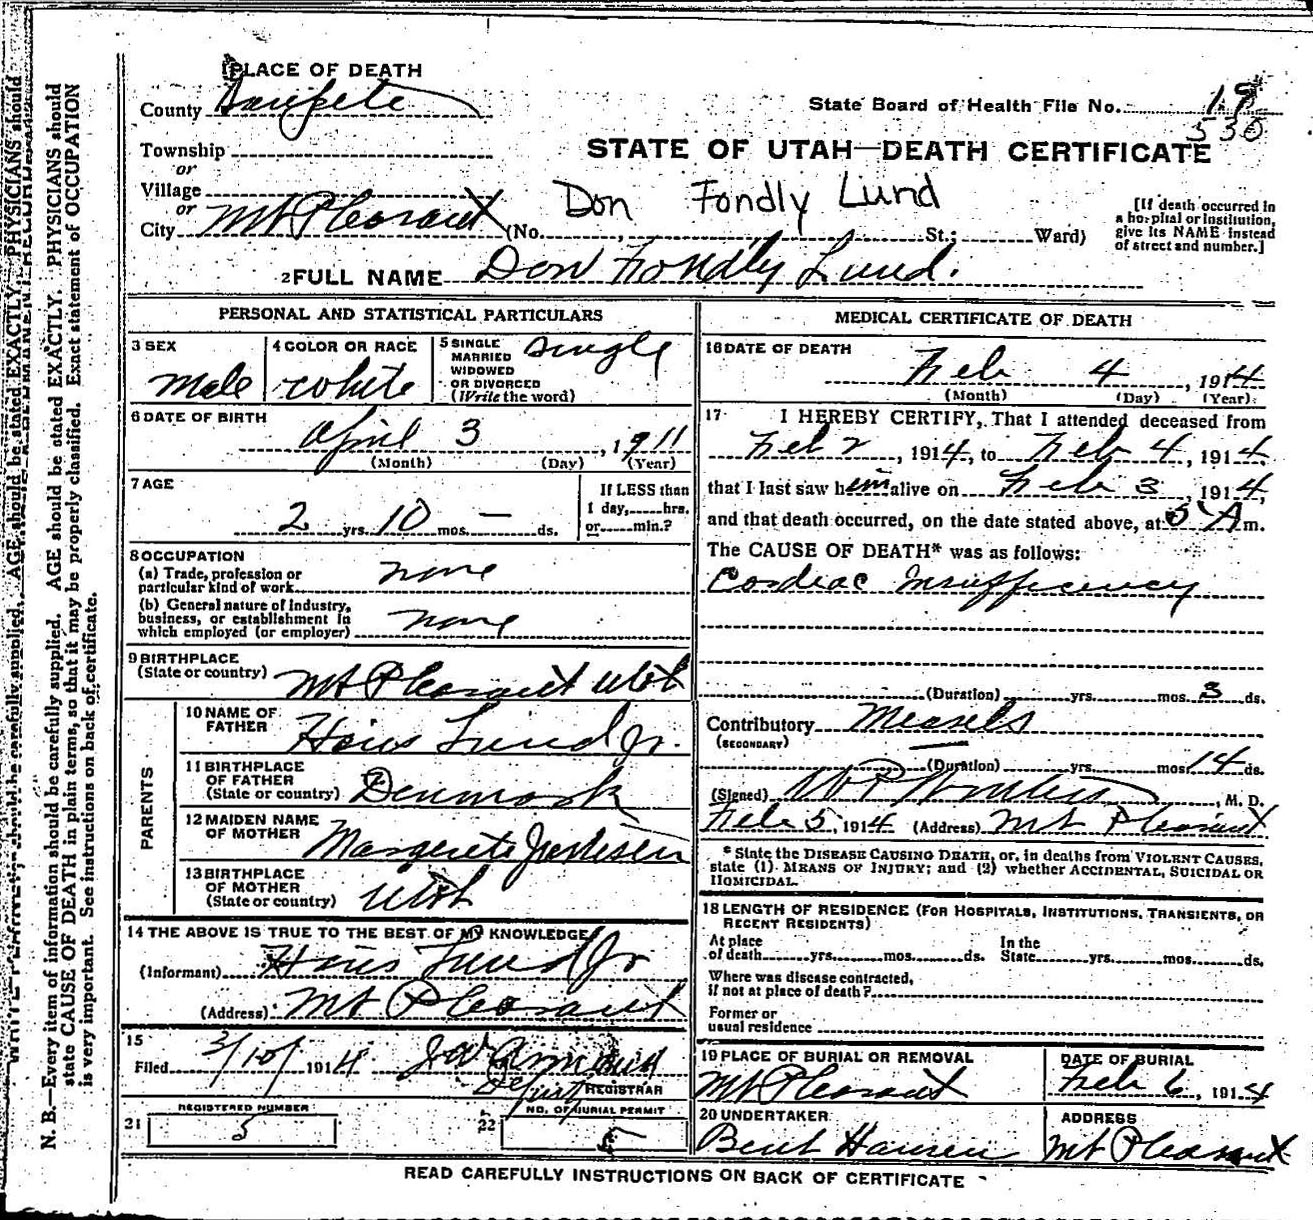 PLACE OF DEATH
County Sanpete
State Board of Health File No. 19
530
Township
or
Village
or
City Mt Pleasant (No. St.; Ward)
STATE OF UTAH—DEATH CERTIFICATE
Don Fondly Lund
[If death occurred in a hospital or institution, give its NAME instead of street and number.]
2 FULL NAME Don Fondly Lund.
PERSONAL AND STATISTICAL PARTICULARS
3 SEX
male
4 COLOR OR RACE
white
5 SINGLE MARRIED WIDOWED OR DIVORCED (Write the word)
single
6 DATE OF BIRTH
April 3, 1911
(Month) (Day) (Year)
7 AGE
2 yrs. 10 mos. — ds.
If LESS than 1 day, hrs. or min.?
8 OCCUPATION
(a) Trade, profession or particular kind of work none
(b) General nature of industry, business, or establishment in which employed (or employer) none
9 BIRTHPLACE
(State or country) Mt Pleasant Utah
PARENTS
10 NAME OF FATHER
Hans Lund Jr.
11 BIRTHPLACE OF FATHER (State or country) Denmark
12 MAIDEN NAME OF MOTHER
Margerete
13 BIRTHPLACE OF MOTHER (State or country) Utah
14 THE ABOVE IS TRUE TO THE BEST OF MY KNOWLEDGE
(Informant) Hans Lund Jr
(Address) Mt Pleasant
15
Filed 2/10/ 1914
Deputy REGISTRAR
REGISTERED NUMBER
21 5
NO. OF BURIAL PERMIT
22 5
MEDICAL CERTIFICATE OF DEATH
16 DATE OF DEATH
Feb 4, 1914
(Month) (Day) (Year)
17 I HEREBY CERTIFY, That I attended deceased from
Feb 2, 1914, to Feb 4, 1914,
that I last saw him alive on Feb 3, 1914,
and that death occurred, on the date stated above, at 5 A m.
The CAUSE OF DEATH* was as follows:
Cordiac Insufficency
(Duration) yrs. mos. 3 ds.
Contributory Measels
(SECONDARY)
(Duration) yrs. mos. 14 ds.
(Signed) , M. D.
Feb 5, 1914 (Address) Mt Pleasant
* State the DISEASE CAUSING DEATH, or, in deaths from VIOLENT CAUSES, state (1) MEANS OF INJURY; and (2) whether ACCIDENTAL, SUICIDAL OR HOMICIDAL.
18 LENGTH OF RESIDENCE (FOR HOSPITALS, INSTITUTIONS, TRANSIENTS, OR RECENT RESIDENTS)
At place of death yrs. mos. ds. In the State yrs. mos. ds.
Where was disease contracted, if not at place of death?
Former or usual residence
19 PLACE OF BURIAL OR REMOVAL
Mt Pleasant
DATE OF BURIAL
Feb 6, 1914
20 UNDERTAKER
Bent Hansen
ADDRESS
Mt Pleasant
READ CAREFULLY INSTRUCTIONS ON BACK OF CERTIFICATE
N. B.—Every item of information should be carefully supplied. AGE should be stated EXACTLY. PHYSICIANS should
state CAUSE OF DEATH in plain terms, so that it may be properly classified. Exact statement of OCCUPATION
is very important. See instructions on back of certificate.